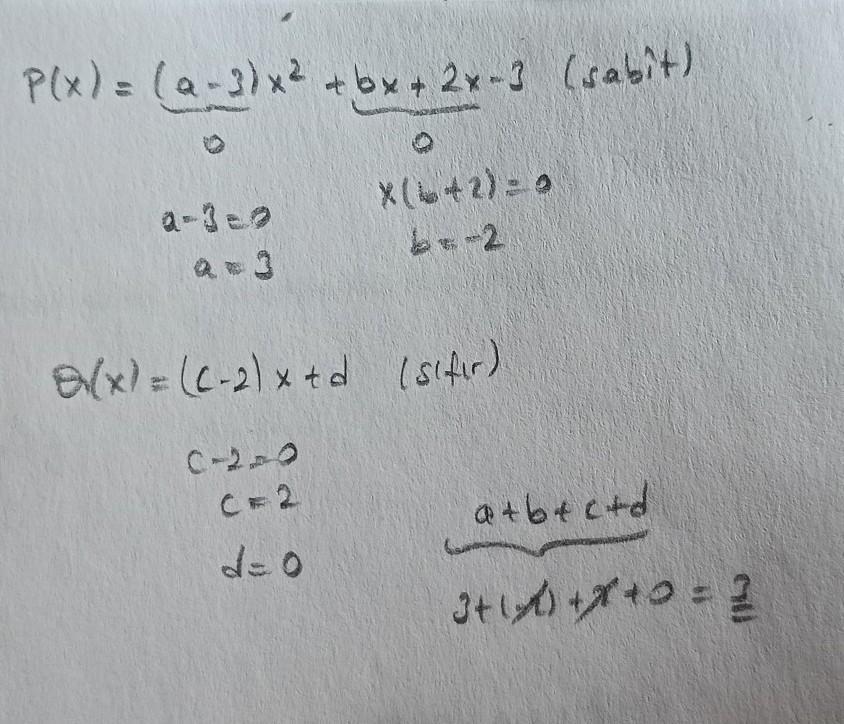 P(x) = (a-3)x² + bx + 2x - 3 (sabit)
0 0
a-3=0 x(b+2)=0
a=3 b=-2
Q(x) = (c-2)x + d (sıfır)
c-2=0
c=2 a+b+c+d
d=0
3+(-2)+2+0=3